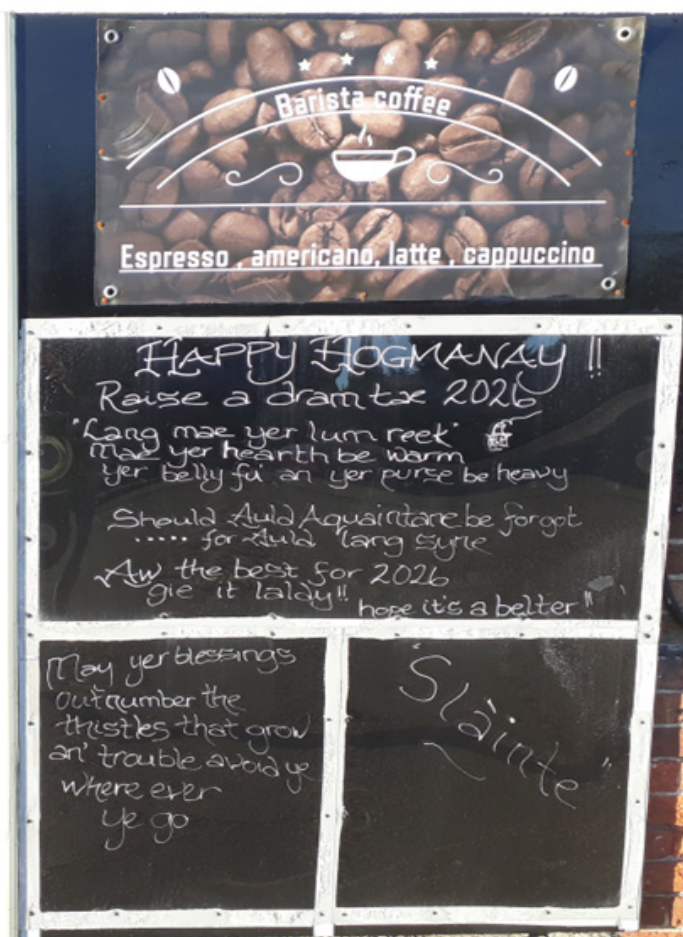 Barista coffee
Espresso , americano, latte , cappuccino
HAPPY HOGMANAY !!
Raise a dram tae 2026
"Lang mae yer lum reek"
Mae yer hearth be warm
yer belly fu' an yer purse be heavy
Should Auld Aquaintane be forgot
..... for Auld lang syne
Aw the best for 2026
gie it laldy!!
hope it's a belter"
May yer blessings
outnumber the
thistles that grow
an' trouble avoid ye
where ever
ye go
"Slàinte"